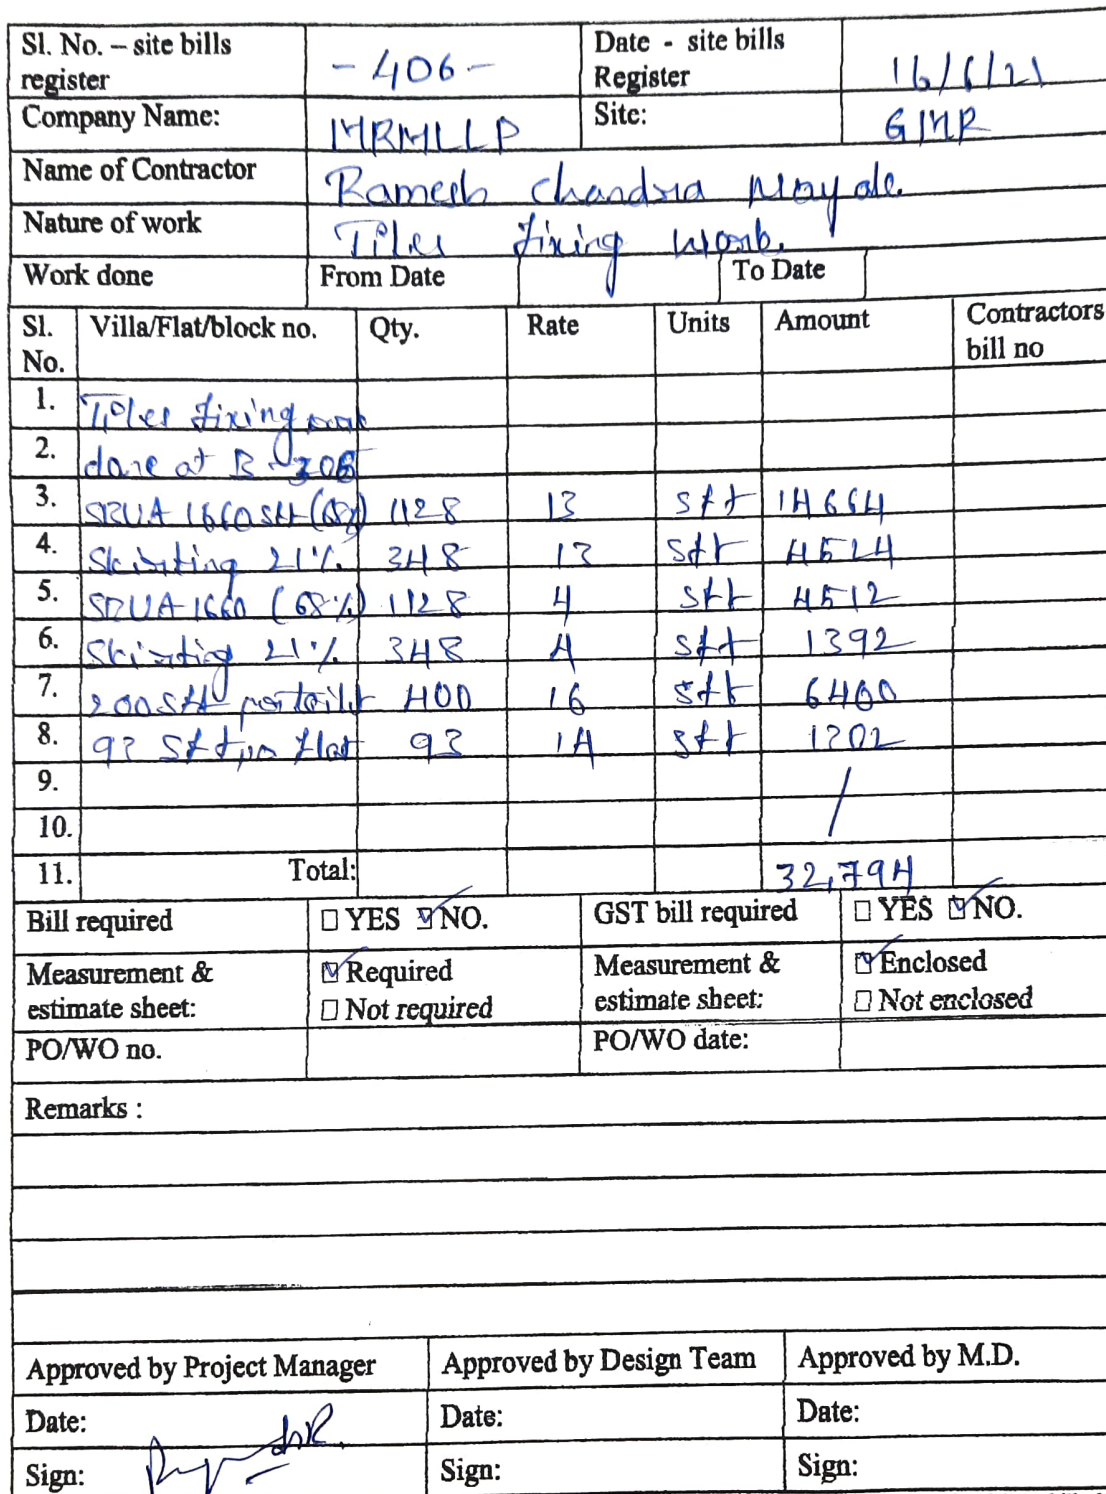 Sl. No. – site bills register - 406 - Date - site bills Register 16/6/21
Company Name: MRMLLP Site: GMR
Name of Contractor Ramesh Chandra
Nature of work Tiles fixing work.
Work done From Date To Date
Sl. No. Villa/Flat/block no. Qty. Rate Units Amount Contractors bill no
1. Tiles fixing work
2. done at B-306
3. SBUA 1660 Sft (68%) 1128 13 sft 14664
4. Skirting 21% 348 13 sft 4524
5. SBUA 1660 (68%) 1128 4 sft 4512
6. Skirting 21% 348 4 sft 1392
7. 200 Sft 400 16 sft 6400
8. 93 Sft per flat 93 14 sft 1302
9. /
10.
11. Total: 32,794
Bill required □ YES ☑ NO. GST bill required □ YES ☑ NO.
Measurement & estimate sheet: ☑ Required □ Not required Measurement & estimate sheet: ☑ Enclosed □ Not enclosed
PO/WO no. PO/WO date:
Remarks :
Approved by Project Manager Approved by Design Team Approved by M.D.
Date: Date: Date:
Sign: Sign: Sign: